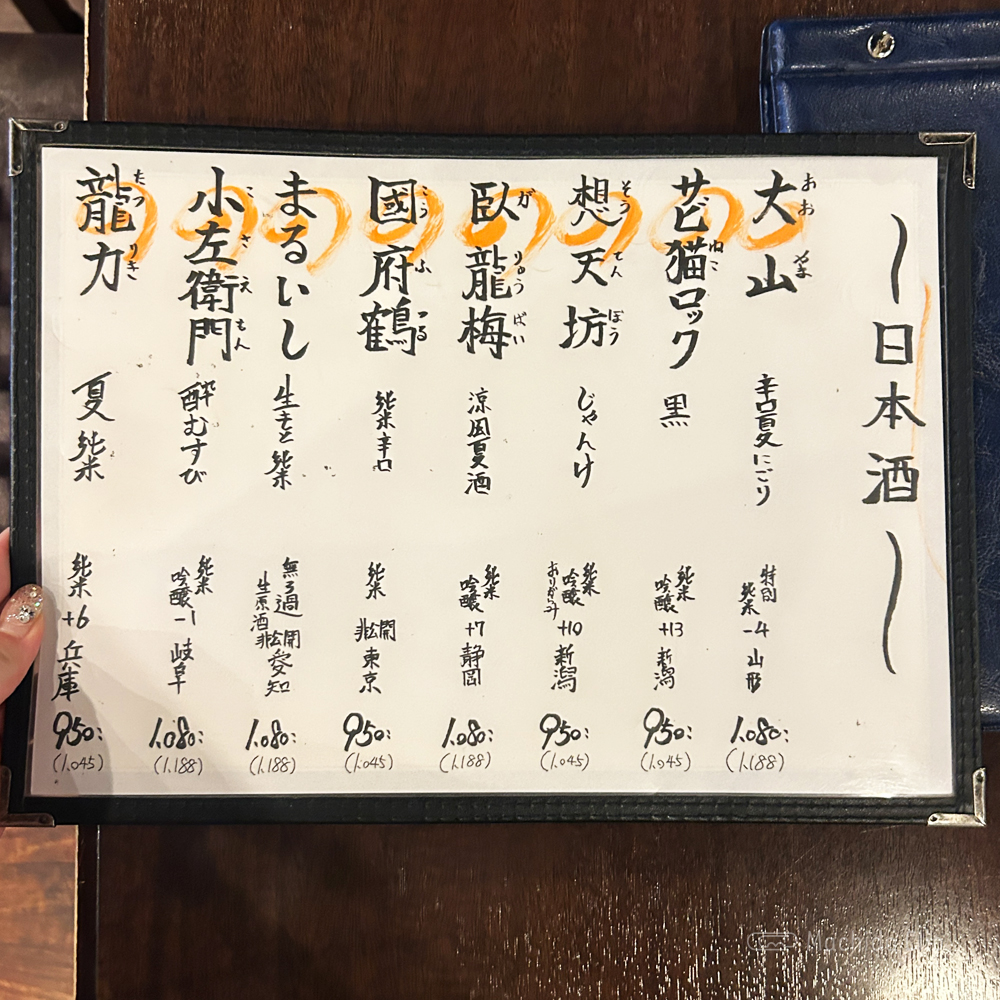 〜日本酒〜
大山
おお やま
辛口夏にごり
特別純米 -4 山形
1.080:
(1.188)
サビ猫ロック
ねこ
黒
純米吟醸 +13 新潟
950:
(1.045)
想天坊
そう てん ぼう
じゃんけ
純米吟醸 ありがらみ +10 新潟
950:
(1.045)
臥龍梅
が りゅう ばい
涼風夏酒
純米吟醸 +7 静岡
1.080:
(1.188)
國府鶴
こう ふ つる
純米辛口
純米 非公開 東京
950:
(1.045)
まるいし
生もと純米
無ろ過生原酒 非公開 愛知
1.080:
(1.188)
小左衛門
こ さ え もん
酔むすび
純米吟醸 -1 岐阜
1.080:
(1.188)
龍力
たつ りき
夏純米
純米 +6 兵庫
950:
(1.045)